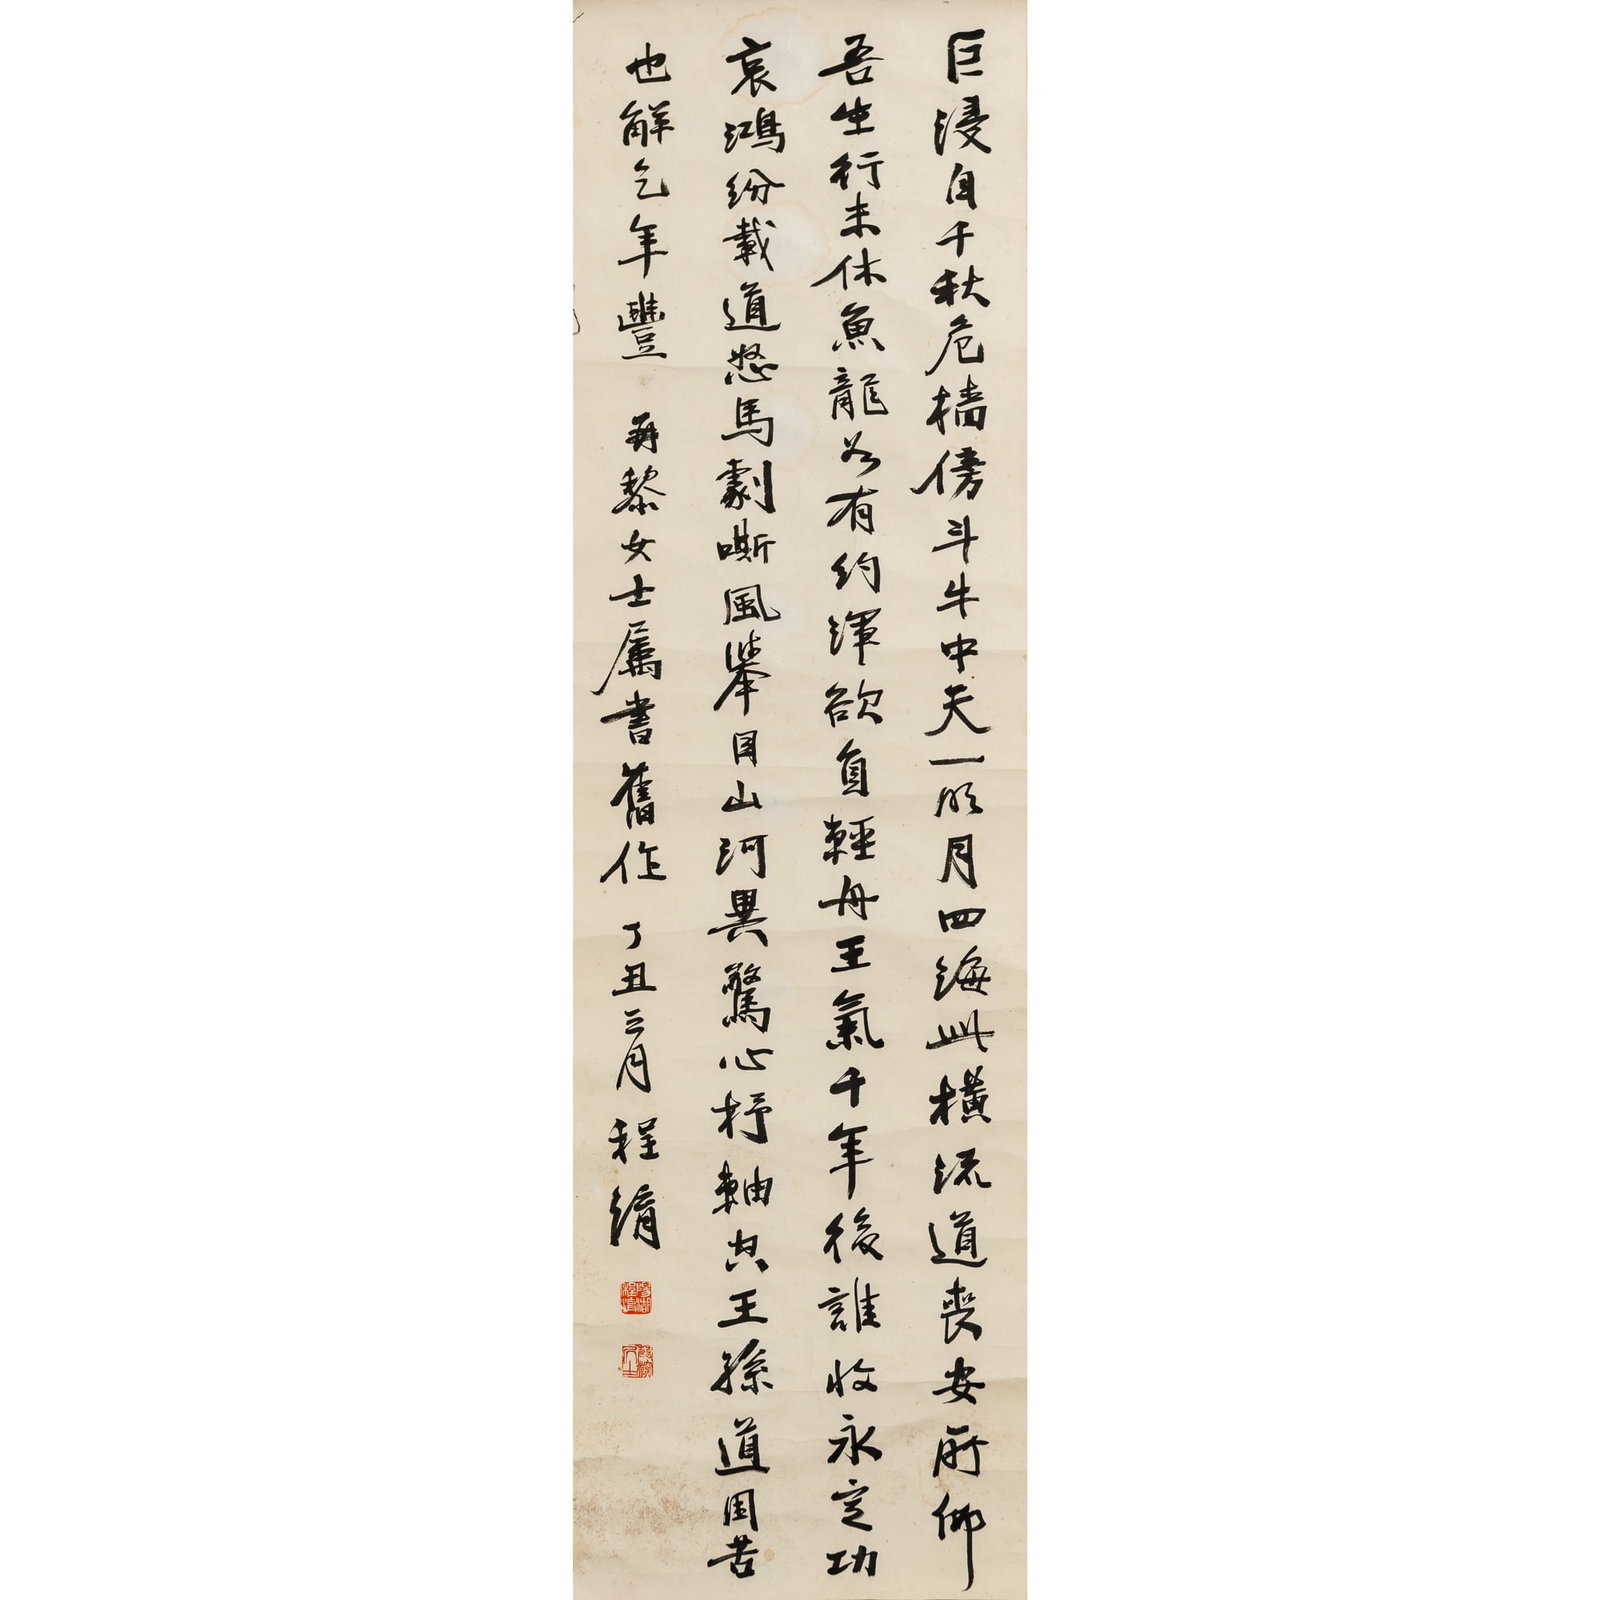 巨浸自千秋危檣傍斗牛中天一明月四海此橫流道喪安所仰
吾生行未休魚龍如有約渾欲負輕舟王氣千年後誰收永定功
哀鴻紛載道怒馬劇嘶風舉目山河異驚心杼軸空王孫道困苦
也解乞年豐 再黎女士屬書舊作 丁丑三月 程淯